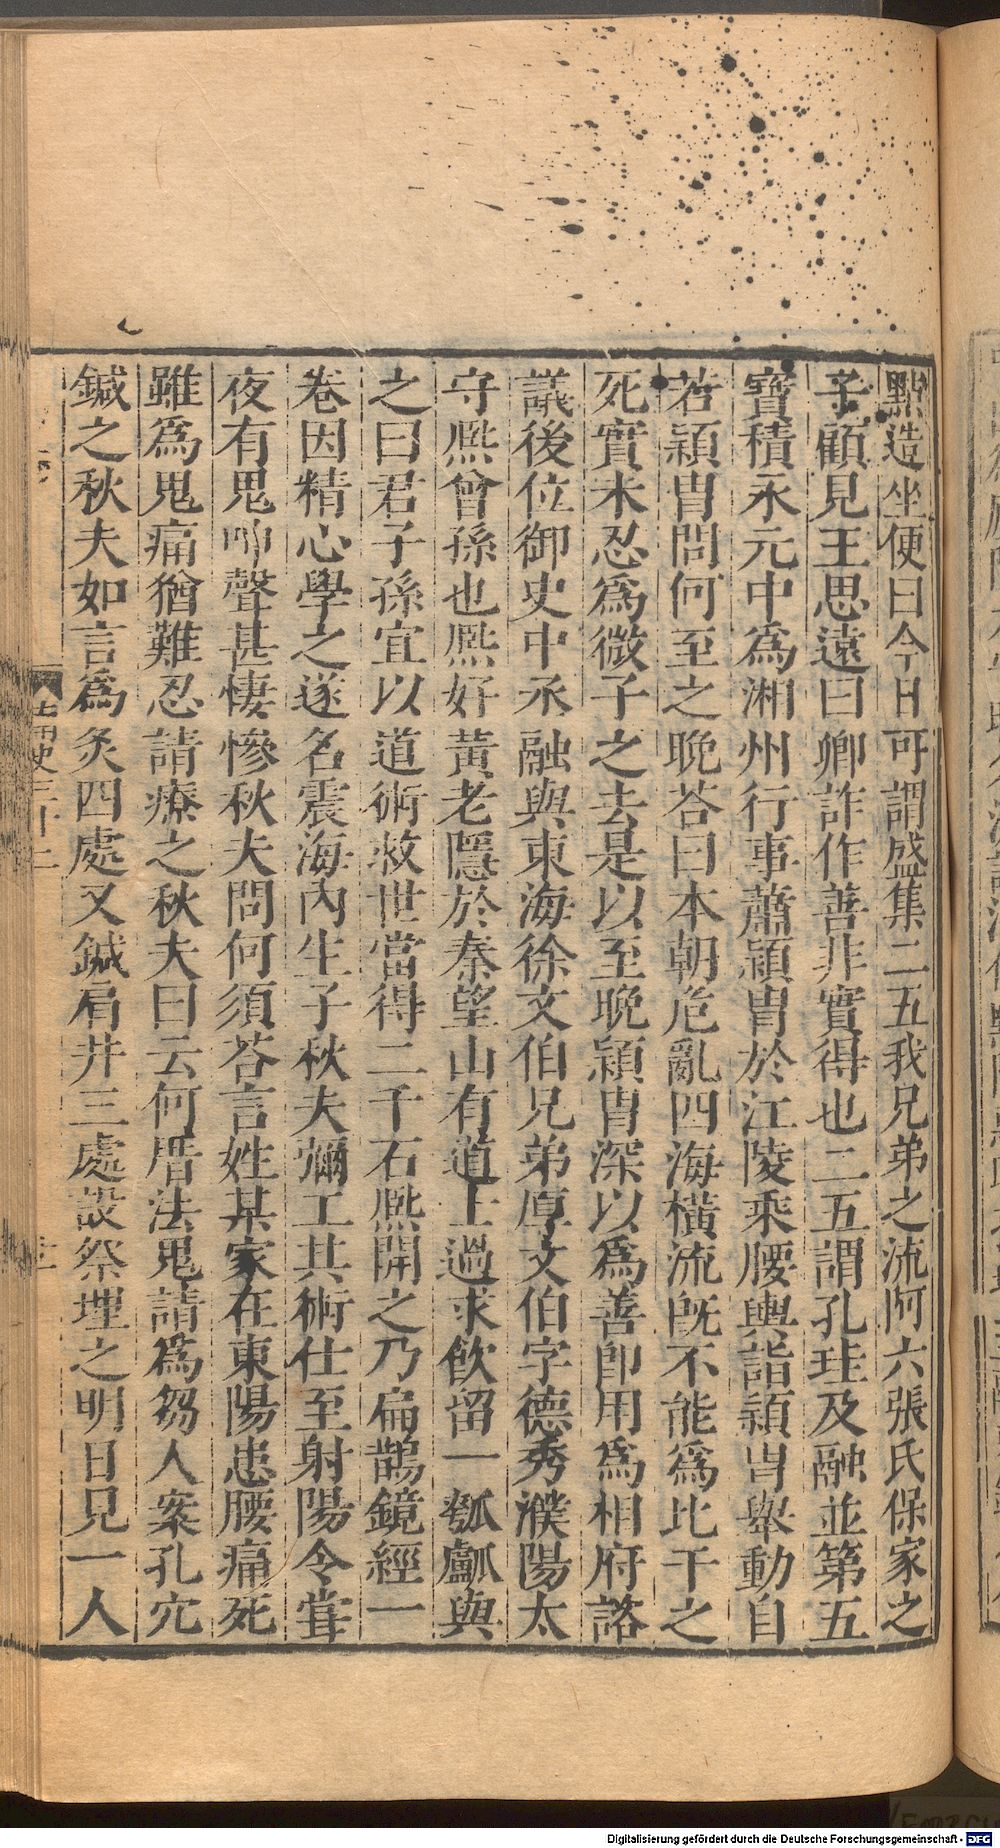 點造坐便曰今日可謂盛集二五我兄弟之流阿六張氏保家之
子顧見王思遠曰卿詐作善非實得也二五謂孔珪及融並第五
寶積永元中為湘州行事蕭穎冑於江陵乘腰輿詣穎冑舉動自
若穎冑問何至之晚荅曰本朝危亂四海橫流旣不能為比干之
死實未忍為微子之去是以至晚穎冑深以為善即用為相府諮
議後位御史中丞融與東海徐文伯兄弟厚文伯字德秀濮陽太
守熈曾孫也熈好黃老隱於秦望山有道士過求飲留一瓠𤬛與
之曰君子孫宜以道術救世當得二千石熈開之乃扁鵲鏡經一
卷因精心學之遂名震海內生子秋夫彌工其術仕至射陽令嘗
夜有鬼呻聲甚悽慘秋夫問何須荅言姓某家在東陽患腰痛死
雖為鬼痛猶難忍請療之秋夫曰云何厝法鬼請為芻人案孔穴
鍼之秋夫如言為灸四處又鍼肩井三處設祭埋之明日見一人
南史三十二
Digitalisierung gefördert durch die Deutsche Forschungsgemeinschaft - DFG